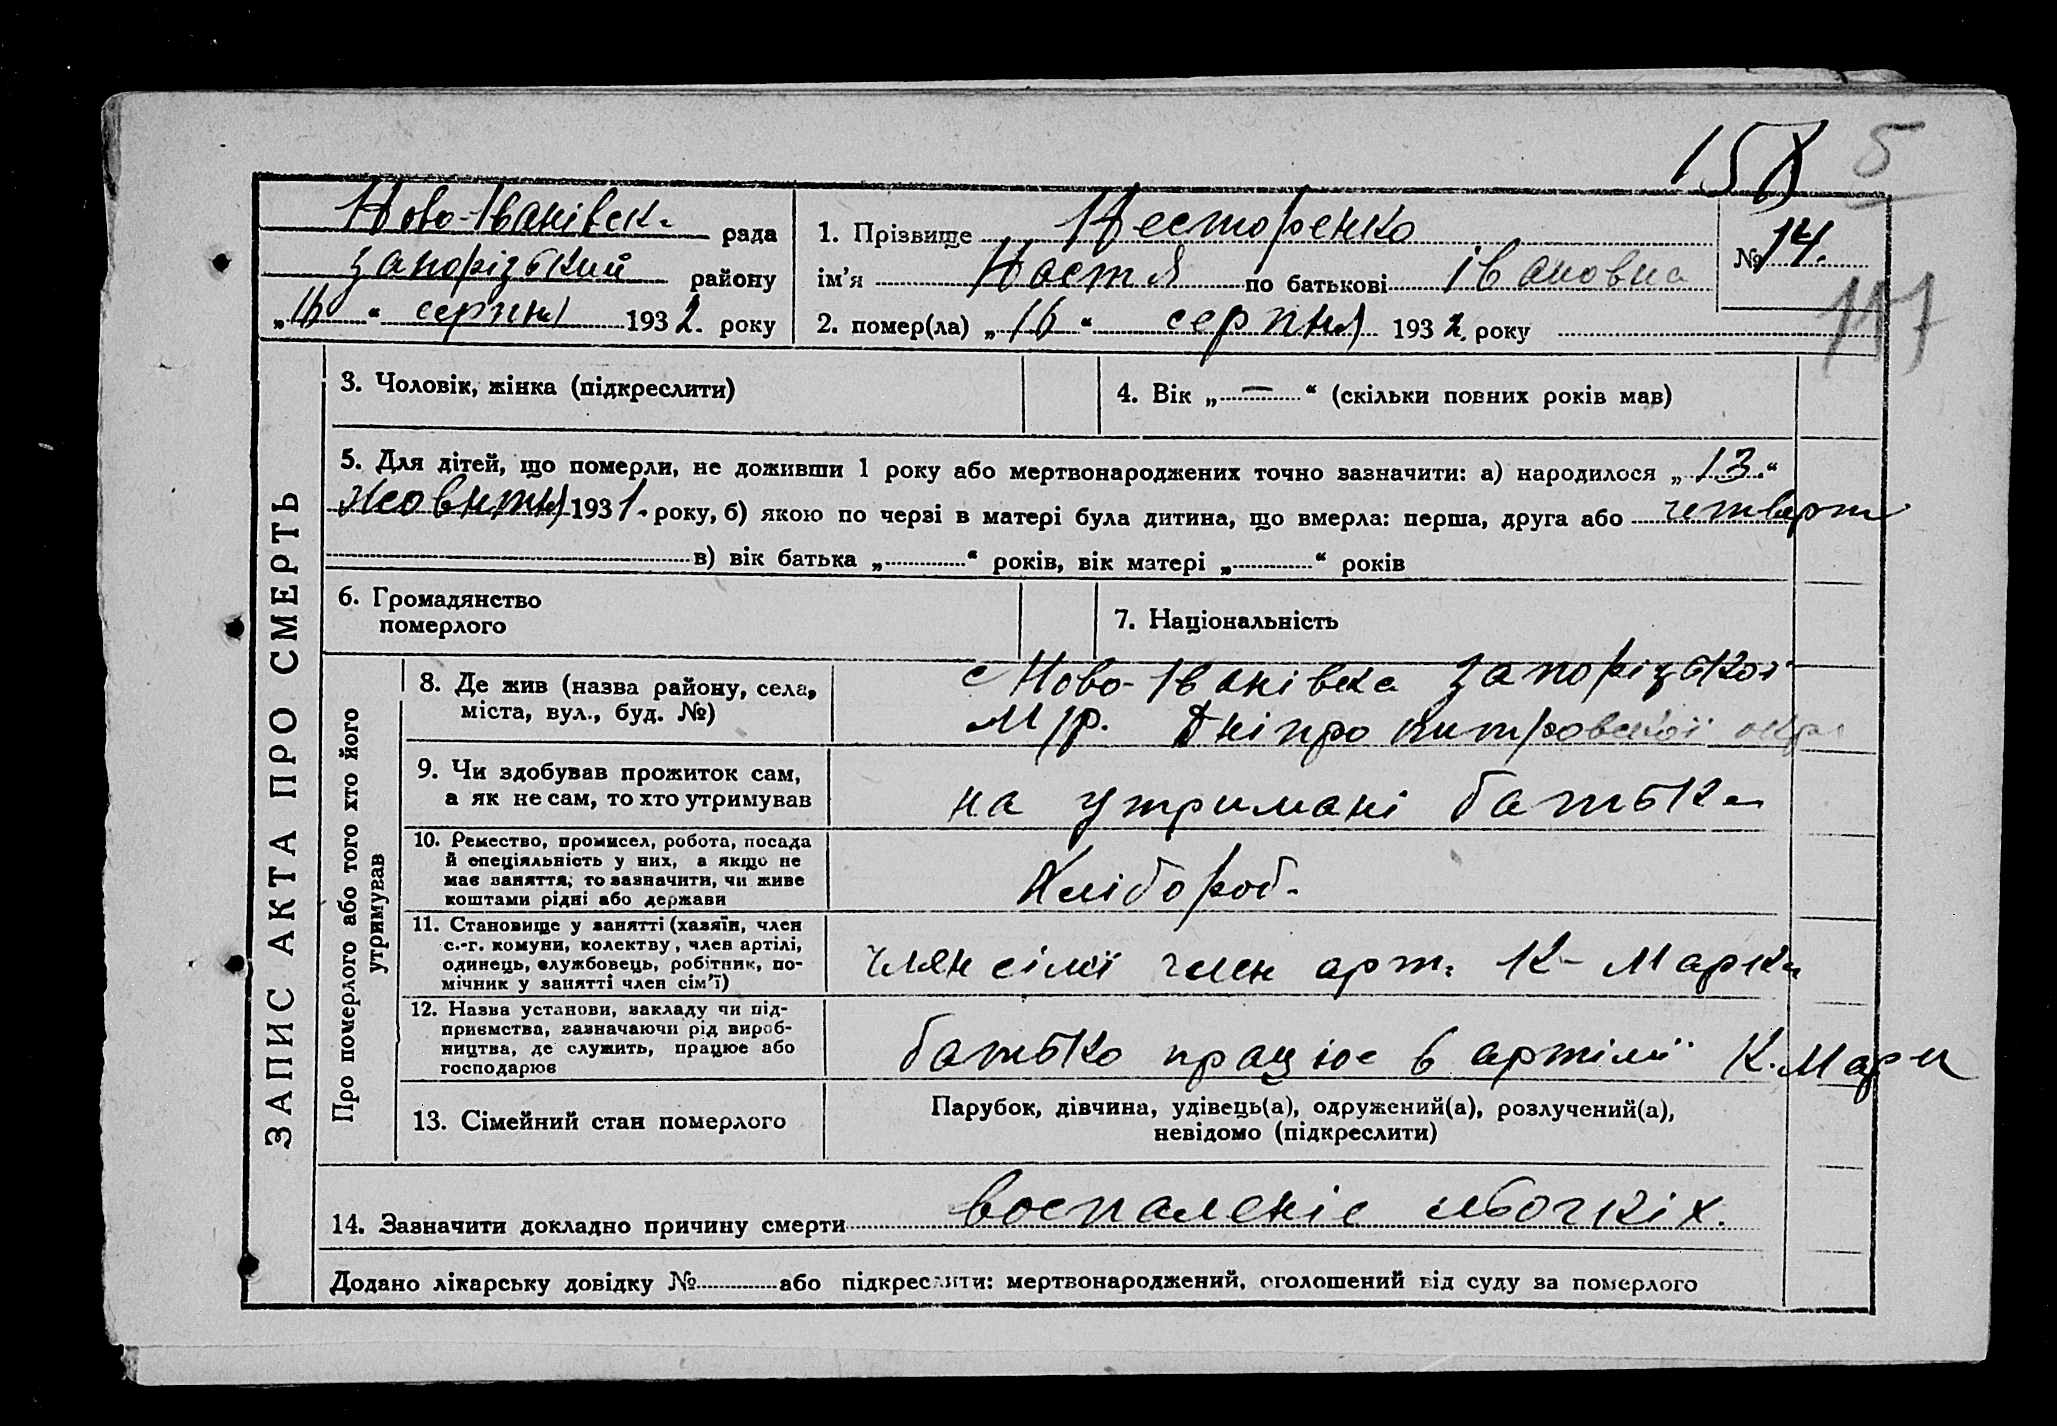 158 5
Ново-Іванівськ рада
Запорізький району
„16“ серпня 1932. року
1. Прізвище Несторенко
ім’я Настя по батькові Івановна
2. помер(ла) „16“ серпня 1932. року
№ 14.
117
ЗАПИС АКТА ПРО СМЕРТЬ
3. Чоловік, жінка (підкреслити)
4. Вік „—“ (скільки повних років мав)
5. Для дітей, що померли, не доживши 1 року або мертвонароджених точно зазначити: а) народилося „13“
жовтня 1931. року, б) якою по черзі в матері була дитина, що вмерла: перша, друга або четверт
в) вік батька „ “ років, вік матері „ “ років
6. Громадянство
померлого
7. Національність
Про померлого або того хто його
утримував
8. Де жив (назва району, села,
міста, вул., буд. №)
с Ново-Іванівка Запорізької
М/р. Дніпропитровської
9. Чи здобував прожиток сам,
а як не сам, то хто утримував
на утримані батька
10. Ремество, промисел, робота, посада
й спеціяльність у них, а якщо не
має заняття; то зазначити, чи живе
коштами рідні або держави
Хлібороб.
11. Становище у занятті (хазяїн, член
с.-г. комуни, колективу, член артілі,
одинець, службовець, робітник, по-
мічник у занятті член сім’ї)
член сімї член арт. К-Маркса
12. Назва установи, закладу чи під-
приємства, зазначаючи рід вироб-
ництва, де служить, працює або
господарює
батько працює в артілії К. Марк
13. Сімейний стан померлого
Парубок, дівчина, удівець(а), одружений(а), розлучений(а),
невідомо (підкреслити)
14. Зазначити докладно причину смерти воспаленіє льогкіх.
Додано лікарську довідку № або підкреслити: мертвонароджений, оголошений від суду за померлого